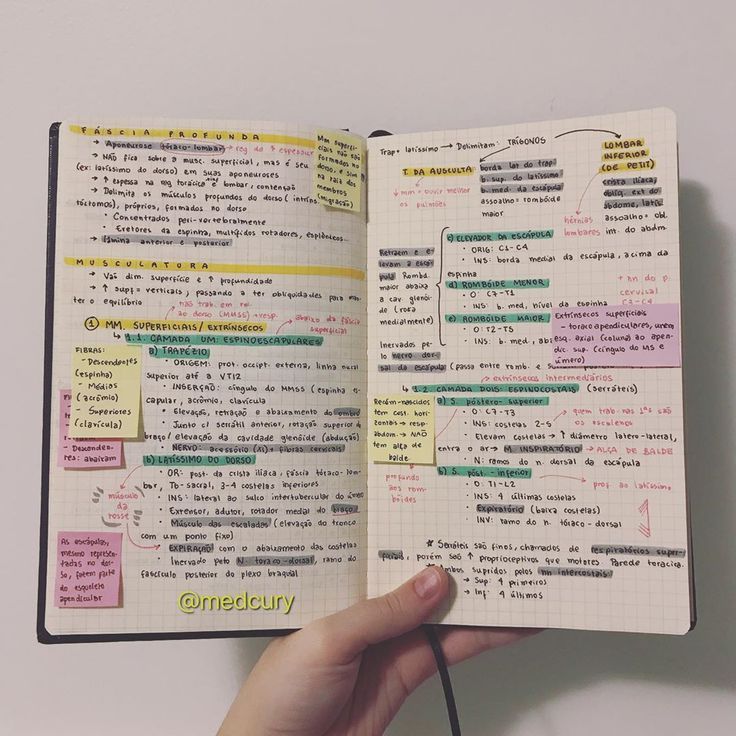 FÁSCIA PROFUNDA
→ Aponeurose tóraco-lombar → reg do ↑ espessor
→ NÃO fica sobre a musc. superficial, mas é seu
(ex: latíssimo do dorso) em suas aponeuroses
→ ↑ espessa na reg torácica e lombar, contenção
→ Delimita os músculos profundos do dorso (intríns.
tóctomos), próprios, formados no dorso
• Concentrados peri-vertebralmente
• Eretores da espinha, multífidos rotadores, esplênios..
→ lâmina anterior e posterior
Mm superfi-
ciais não são
formados no
dorso, e sim
na raia dos
membros
(migração)
MUSCULATURA
→ Vai dim. superfície e ↑ profundidade
→ ↑ supf = verticais, passando a ter obliquidades para man-
ter o equilíbrio
→ nas trab. em re.
ao dorso (MMSS) + resp.
abaixo da fáscia
superficial
1 MM. SUPERFICIAIS/ EXTRÍNSECOS
↳ 1.1. CAMADA UM: ESPINOESCAPULARES
a) TRAPÉZIO
• ORIGEM: prot. occipit externa, linha nucal
superior até a VT12
• INSERÇÃO: cíngulo do MMSS (espinha es-
capular, acrômio, clavícula
• Elevação, retração e abaixamento do ombro
• Junto c/ serrátil anterior, rotação superior do
braço/ elevação da cavidade glenóide (abdução)
• NERVO: acessório (XI) + fibras cervicais
FIBRAS:
- Descendentes
(espinha)
- Médias
(acrômio)
- Superiores
(clavícula)
- Descenden-
tes: abaixam
b) LATÍSSIMO DO DORSO
• OR: post. da crista ilíaca, fáscia tóraco-lom-
bar, Tb-sacral, 3-4 costelas inferiores
• INS: lateral ao sulco intertubercular do úmero
• Extensor, adutor, rotador medial do braço
• Músculo das escaladas (elevação do tronco
com um ponto fixo)
• EXPIRAÇÃO com o abaixamento das costelas
• Inervado pelo N. toraco-dorsal, ramo do
fascículo posterior do plexo braquial
músculo
da
tosse
As escápulas,
mesmo represen-
tadas no dor-
so, fazem parte
do esqueleto
apendicular
@medcury
Trap + latíssimo → Delimitam: TRÍGONOS
T. DA AUSCULTA
↓ mm = ouvir melhor
os pulmões
borda lat do trap
b. sup. do latíssimo
b. med. da escápula
assoalho = rombóide
maior
LOMBAR
INFERIOR
(DE PETIT)
crista ilíaca,
obliq. ext do
abdome, latís.
assoalho = obl.
int. do abdm.
hérnias
lombares
Retraem e e-
levam a escá-
pula Romb.
maior abaixa
a cav. glenói-
de (roda
medialmente)
Inervados pe-
lo nervo dor-
sal da escápula (passa entre romb. e
c) ELEVADOR DA ESCÁPULA
• ORIG: C1-C4
• INS: borda medial da escápula, acima da
espinha
d) ROMBÓIDE MENOR
• O: C7-T1
• INS: b. med, nível da espinha
e) ROMBOIDE MAIOR
• O: T2-T5
• INS: b. med, abai
+ nn do p.
cervical
C3-C4
Extrínsecos superficiais
- toraco apendiculares, unem
esq. axial (coluna) ao apen-
dic. sup. (cíngulo do MS e
úmero)
→ extrínsecos intermediários
↳ 1.2. CAMADA DOIS: ESPINOCOSTAIS (serráteis)
a) S. póstero-superior
• O: C7-T3
• INS: costelas 2-5
• Elevam costelas → ↑ diâmetro latero-lateral,
entra o ar → M INSPIRATÓRIO → ALÇA DE BALDE
• N: ramos do n. dorsal da escápula
quem trab nas 1ªs são
os escalenos
Recém-nascidos
tem cost. hori-
zontais → resp
abdom. → NÃO
tem alça de
balde
profundo
aos rom-
bóides
b) S. póst. - inferior
• O: T1-L2
• INS: 4 últimas costelas
• Expiratório (baixa costelas)
• INV: ramo do n. tóraco-dorsal
prof. ao latíssimo
★ Serráteis são finos, chamados de respiratórios super-
ficiais, porém são ↑ proprioceptivos que motores. Parede toracica.
★ Ambos supridos pelos nn intercostais
→ Sup: 4 primeiros
→ Inf: 4 últimos